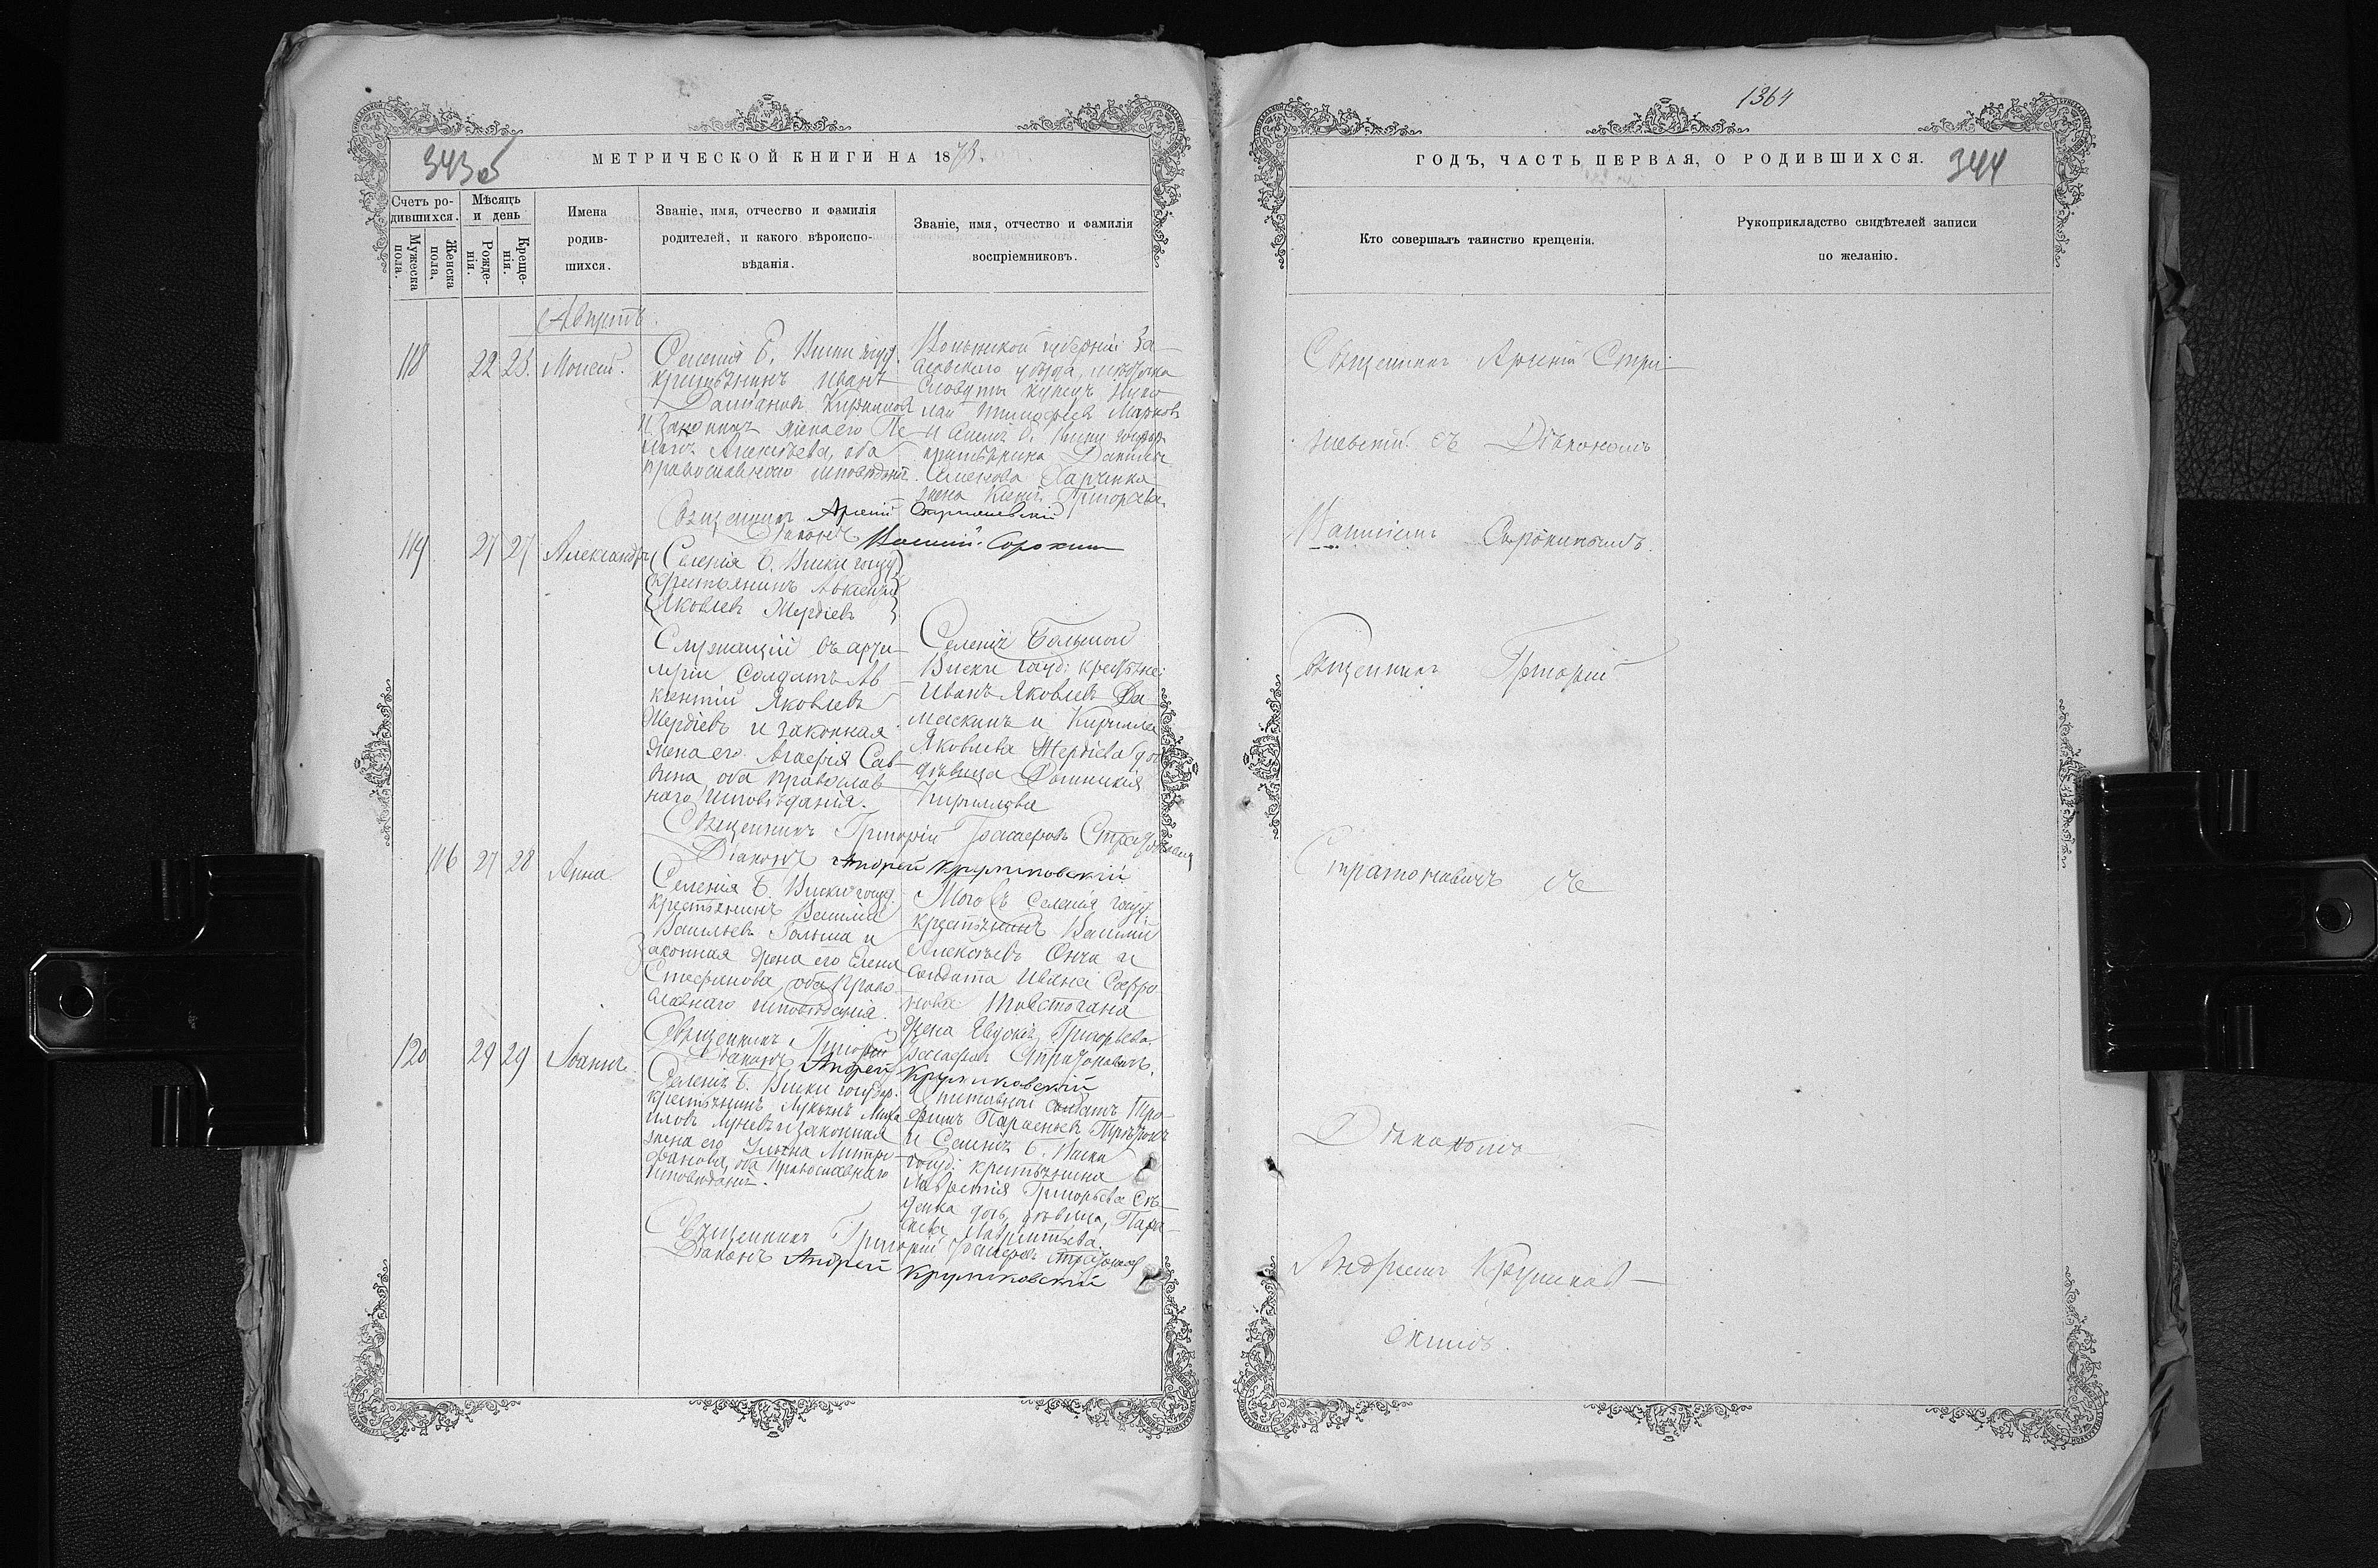 343об
МЕТРИЧЕСКОЙ КНИГИ НА 1873.
Счетъ ро-
дившихся.
Мужеска
пола.
Женска
пола.
Мѣсяцъ
и день
Рожде-
нія.
Креще-
нія.
Имена
родив-
шихся.
Званіе, имя, отчество и фамилія
родителей, и какого вѣроиспо-
вѣданія.
Званіе, имя, отчество и фамилія
воспріемниковъ.
118
22 23.
Моисей.
Селенія Б. Виски госуд.
крестьянинъ Иванъ
законная жена его Пе-
лагія Алексѣева, оба
православнаго исповѣданія.
Волынской губерніи За-
славскаго уѣзда, мѣстечка
Славуты купецъ Нико-
лай Тимофеевъ Марковъ
и Селенія Б. Виски госуд.
крестьянина Данила
Семенова Харченка
жена Ксенія Григорьева.
Священникъ Арсеній
Діаконъ Василій Сорокинъ
119
27 27
Александръ
Селенія Б. Виски госуд.
крестьянинъ Авксентій
Яковлевъ Жердіевъ
Служащій въ арти-
леріи Солдатъ Ав-
ксентій Яковлевъ
Жердіевъ и законная
жена его Агафія Сав-
вина, оба православ-
наго исповѣданія.
Селенія Большой
Виски госуд: крестьяне:
Иванъ Яковлевъ Да-
маскинъ и Кирилла
Яковлева Жердіева дочь
дѣвица Домникія
Кириллова
Священникъ Григорій Стратоновичъ
Діаконъ Андрей Крушковскій
116 27 28
Анна
Селенія Б. Виски госуд.
крестьянинъ Василій
Васильевъ Гальша и
законная жена его Елена
Стефанова, оба право-
славнаго исповѣданія.
Того ж Селенія госуд.
крестьянинъ Василій
Алексѣевъ Онча и
солдата Ивана Софро-
нова Товстогана
жена Евдокія Григорьева.
Священникъ Григорій Стратоновичъ.
Діаконъ Андрей Крушковскій
120
29 29
Іоаннъ.
Селенія Б. Виски госуд.
крестьянинъ Лукьянъ Миха-
иловъ Луневъ и законная
жена его Ульяна Митро-
фанова, оба православнаго
исповѣданія.
солдатъ Тро-
фимъ
и Селенія Б. Виски
госуд: крестьянина
Лаврентія Григорьева
дочь, дѣвица, Параскева
Лаврентьева.
Священникъ Григорій
Діаконъ Андрей Крушковскій
1364
ГОДЪ, ЧАСТЬ ПЕРВАЯ, О РОДИВШИХСЯ.
344
Кто совершалъ таинство крещенія.
Рукоприкладство свидѣтелей записи
по желанію.
Священникъ Арсеній
съ Діакономъ
Василіемъ Сорокинымъ.
Священникъ Григорій
Стратоновичъ съ
Діакономъ
Андреемъ Крушков-
скимъ.